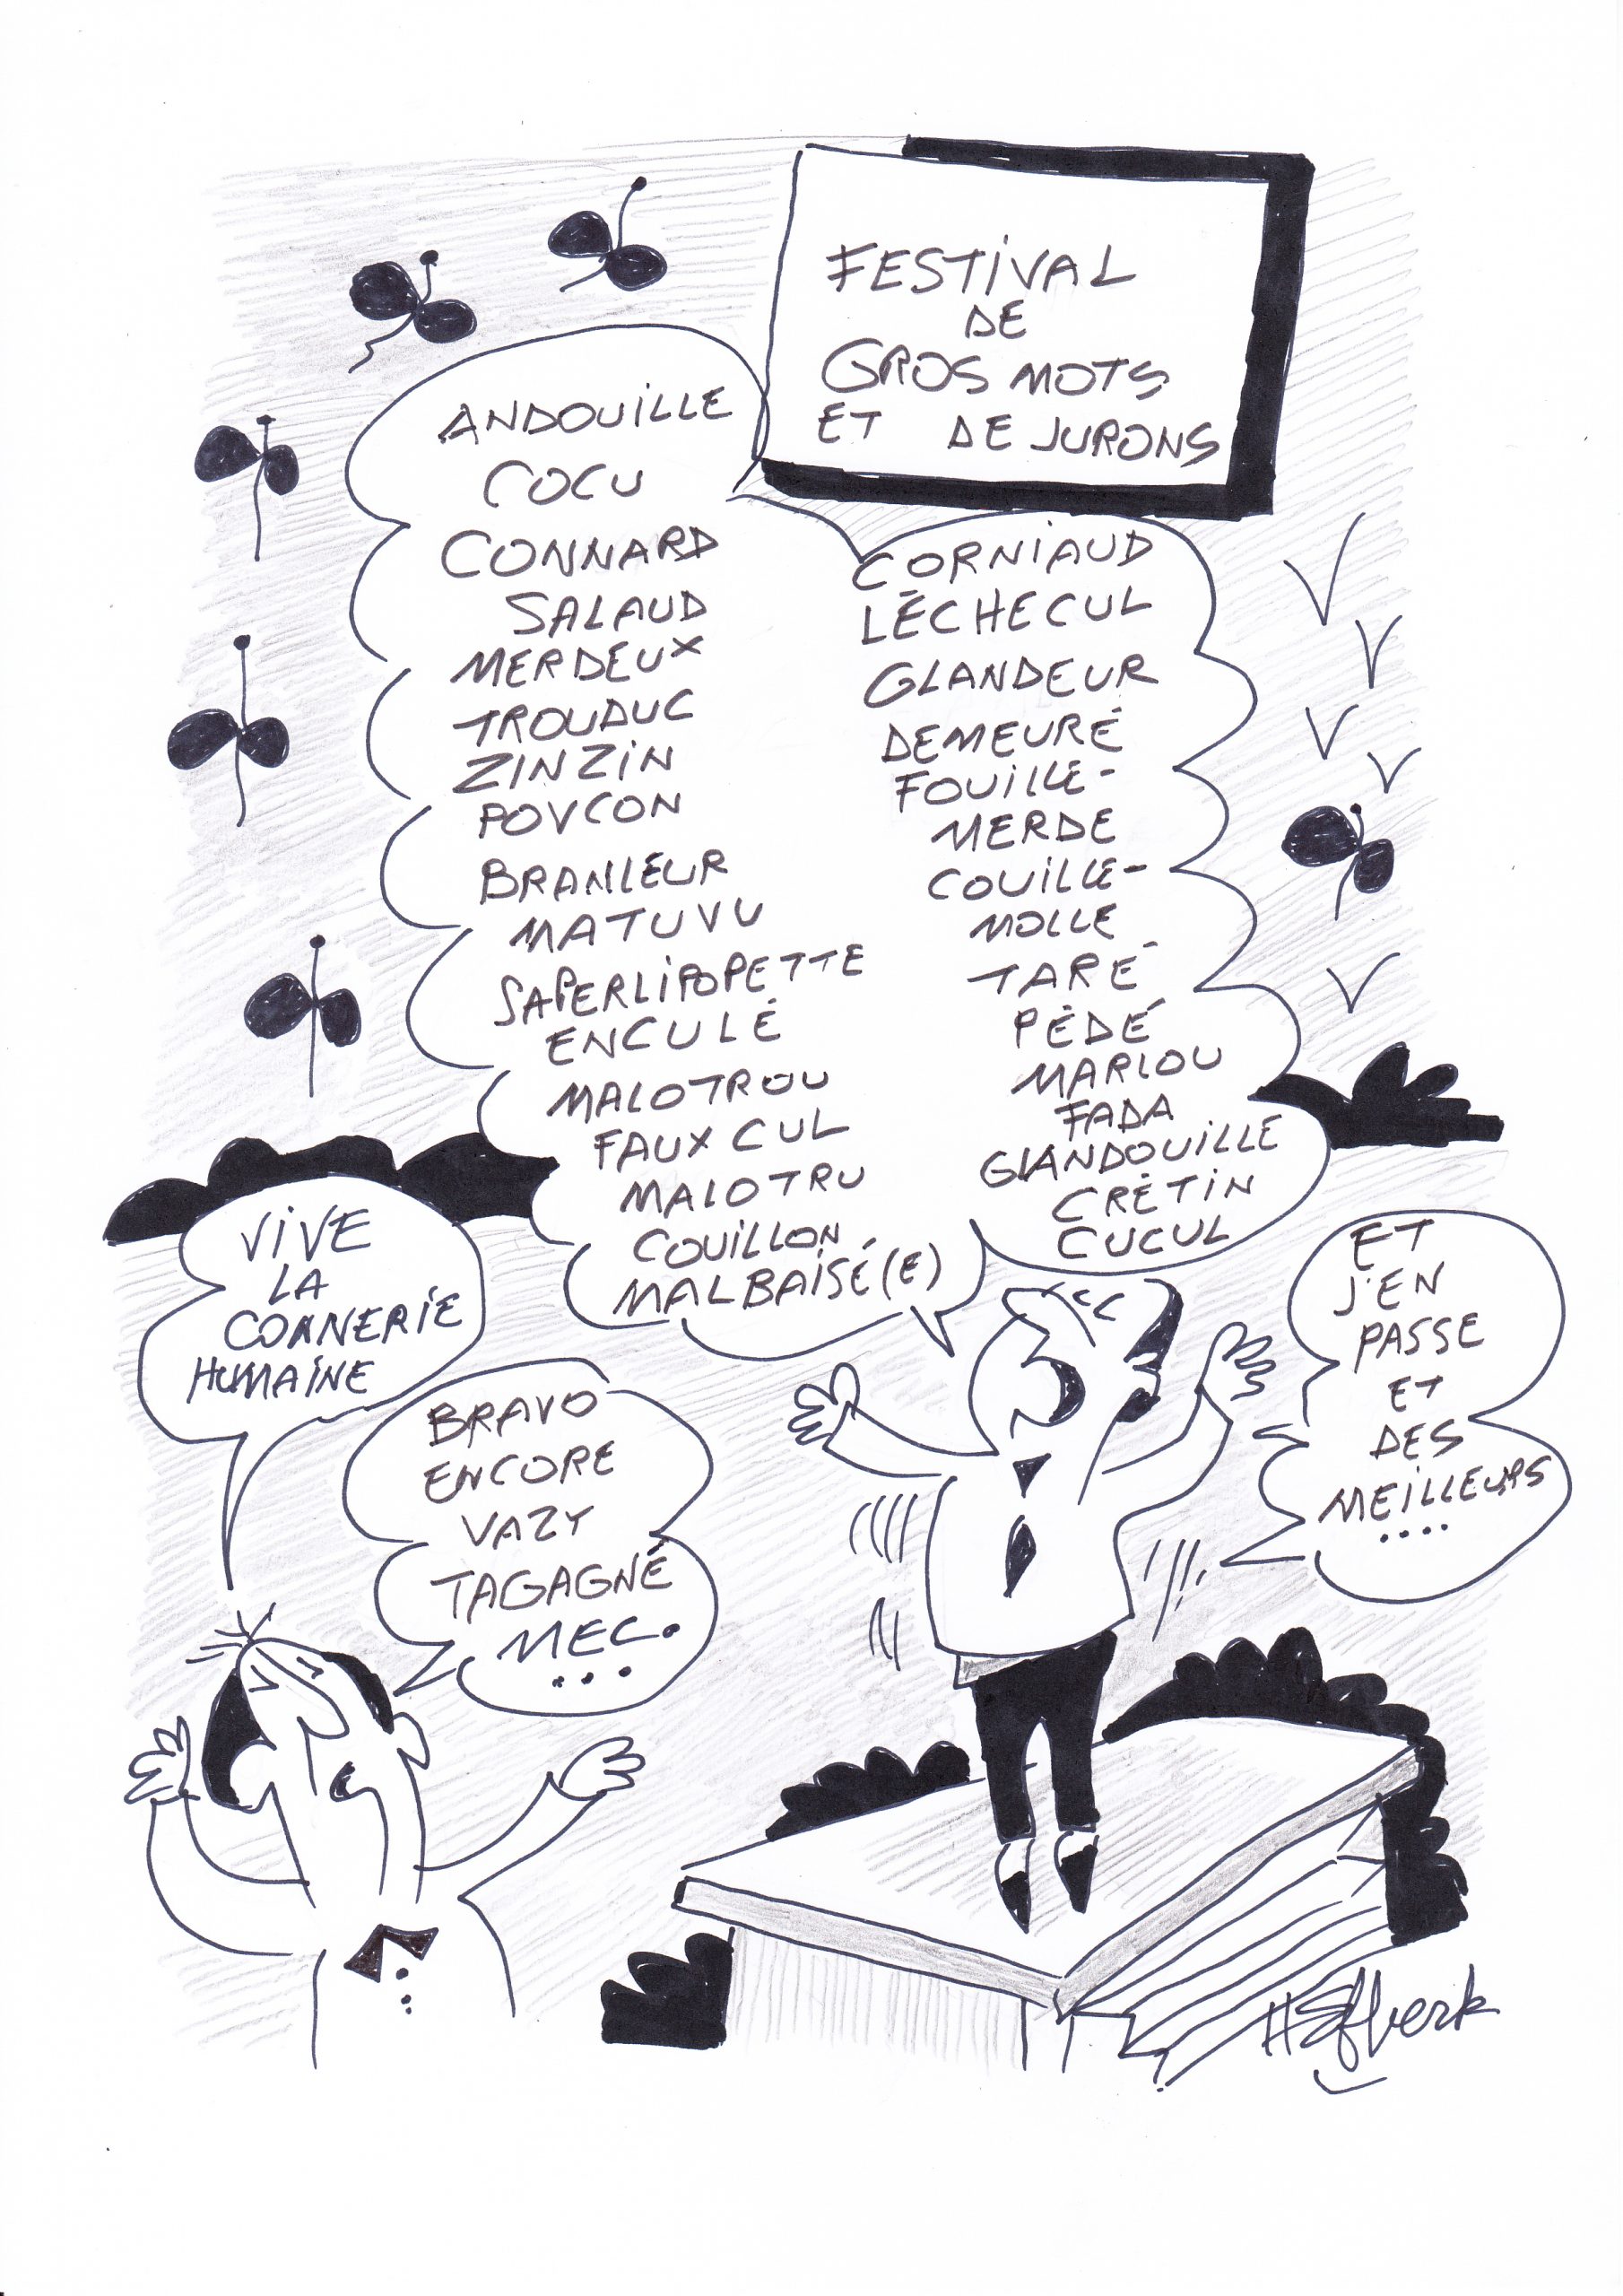 FESTIVAL
DE
GROS MOTS
ET DE JURONS
ANDOUILLE
COCU
CONNARD
SALAUD
MERDEUX
TROUDUC
ZINZIN
POVCON
BRANLEUR
MATUVU
SAPERLIPOPETTE
ENCULÉ
MALOTROU
FAUX CUL
MALOTRU
COUILLON
MALBAISÉ(E)
CORNIAUD
LÉCHECUL
GLANDEUR
DEMEURÉ
FOUILLE-
MERDE
COUILLE-
MOLLE
TARÉ
PÉDÉ
MARLOU
FADA
GLANDOUILLE
CRÉTIN
CUCUL
VIVE
LA
CONNERIE
HUMAINE
BRAVO
ENCORE
VAZY
TAGAGNÉ
MEC.
...
ET
J'EN
PASSE
ET
DES
MEILLEURS
....